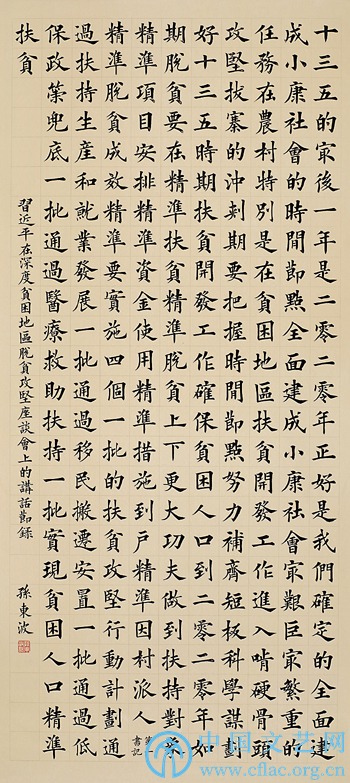 十三五的最後一年是二零二零年正好是我們確定的全面建
成小康社會的時間節點全面建成小康社會最艱巨最繁重的
任務在農村特別是在貧困地區扶貧開發工作進入啃硬骨頭
攻堅拔寨的沖刺期要把握時間節點努力補齊短板科學謀劃
好十三五時期扶貧開發工作確保貧困人口到二零二零年如
期脫貧要在精準扶貧精準脫貧上下更大功夫做到扶持對象
精準項目安排精準資金使用精準措施到戶精準因村派人第一書記
精準脫貧成效精準要實施四個一批的扶貧攻堅行動計劃通
過扶持生產和就業發展一批通過移民搬遷安置一批通過低
保政策兜底一批通過醫療救助扶持一批實現貧困人口精準
扶貧
習近平在深度貧困地區脫貧攻堅座談會上的講話節錄 孫東波
中国文艺网
www.cflac.org.cn